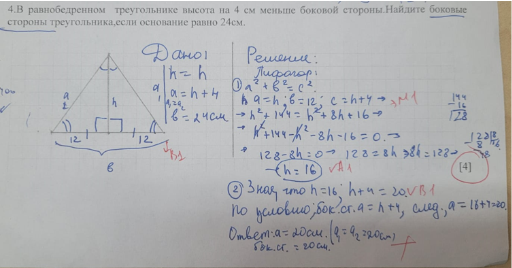 4.В равнобедренном треугольнике высота на 4 см меньше боковой стороны.Найдите боковые
стороны треугольника,если основание равно 24см.
Дано:
h = h
a = h+4
b = 24см
a
2
h
a
1
12
12
b
√B1
Решение:
Пифагор:
① a² + b² = c².
a = h; b = 12; c = h+4 → M1
h² + 144 = h² + 8h + 16 →
h² + 144 - h² - 8h - 16 = 0. →
128 - 8h = 0 → 128 = 8h → 8h = 128 →
h = 16 √A1
144
16
128
[4]
② Зная, что h = 16, h+4 = 20. √B1
По условию, бок.ст. a = h+4, след., a = 16+4 = 20.
Ответ: a = 20см. (a₁ = a₂ = 20см)
бок.ст. = 20см.